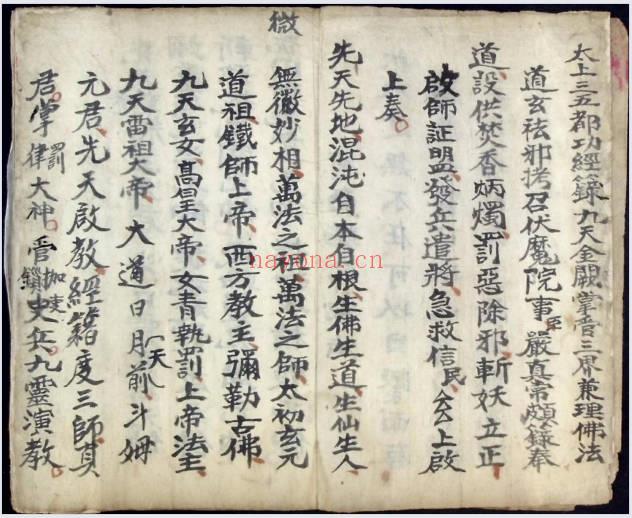 太上三五都功經籙九天金闕掌管三界兼理佛法
道玄祛邪拷召伏魔院事臣嚴真常頗籙奉
道設供焚香炳燭罰惡除邪斬妖立正
啟師証盟發兵遣將急救信民厶上啟
上奏
先天先地混沌自本自根生佛生道生仙生人
微
無徽妙相萬法之祖萬法之師太初玄元
道祖鐵師上帝西方教主彌勒古佛
九天玄女高皇大帝女青執罰上帝法主
九天雷祖大帝大道日月前斗姆
一天
元君先天啟教經籍度三師真
君掌罰律大神管枷鎖吏兵九靈演教
nayona.cn